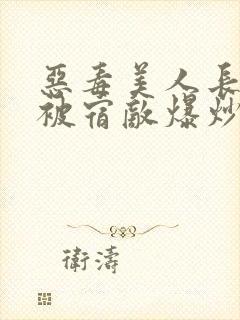 惡毒美人長
被宿敵爆炒
衛濤